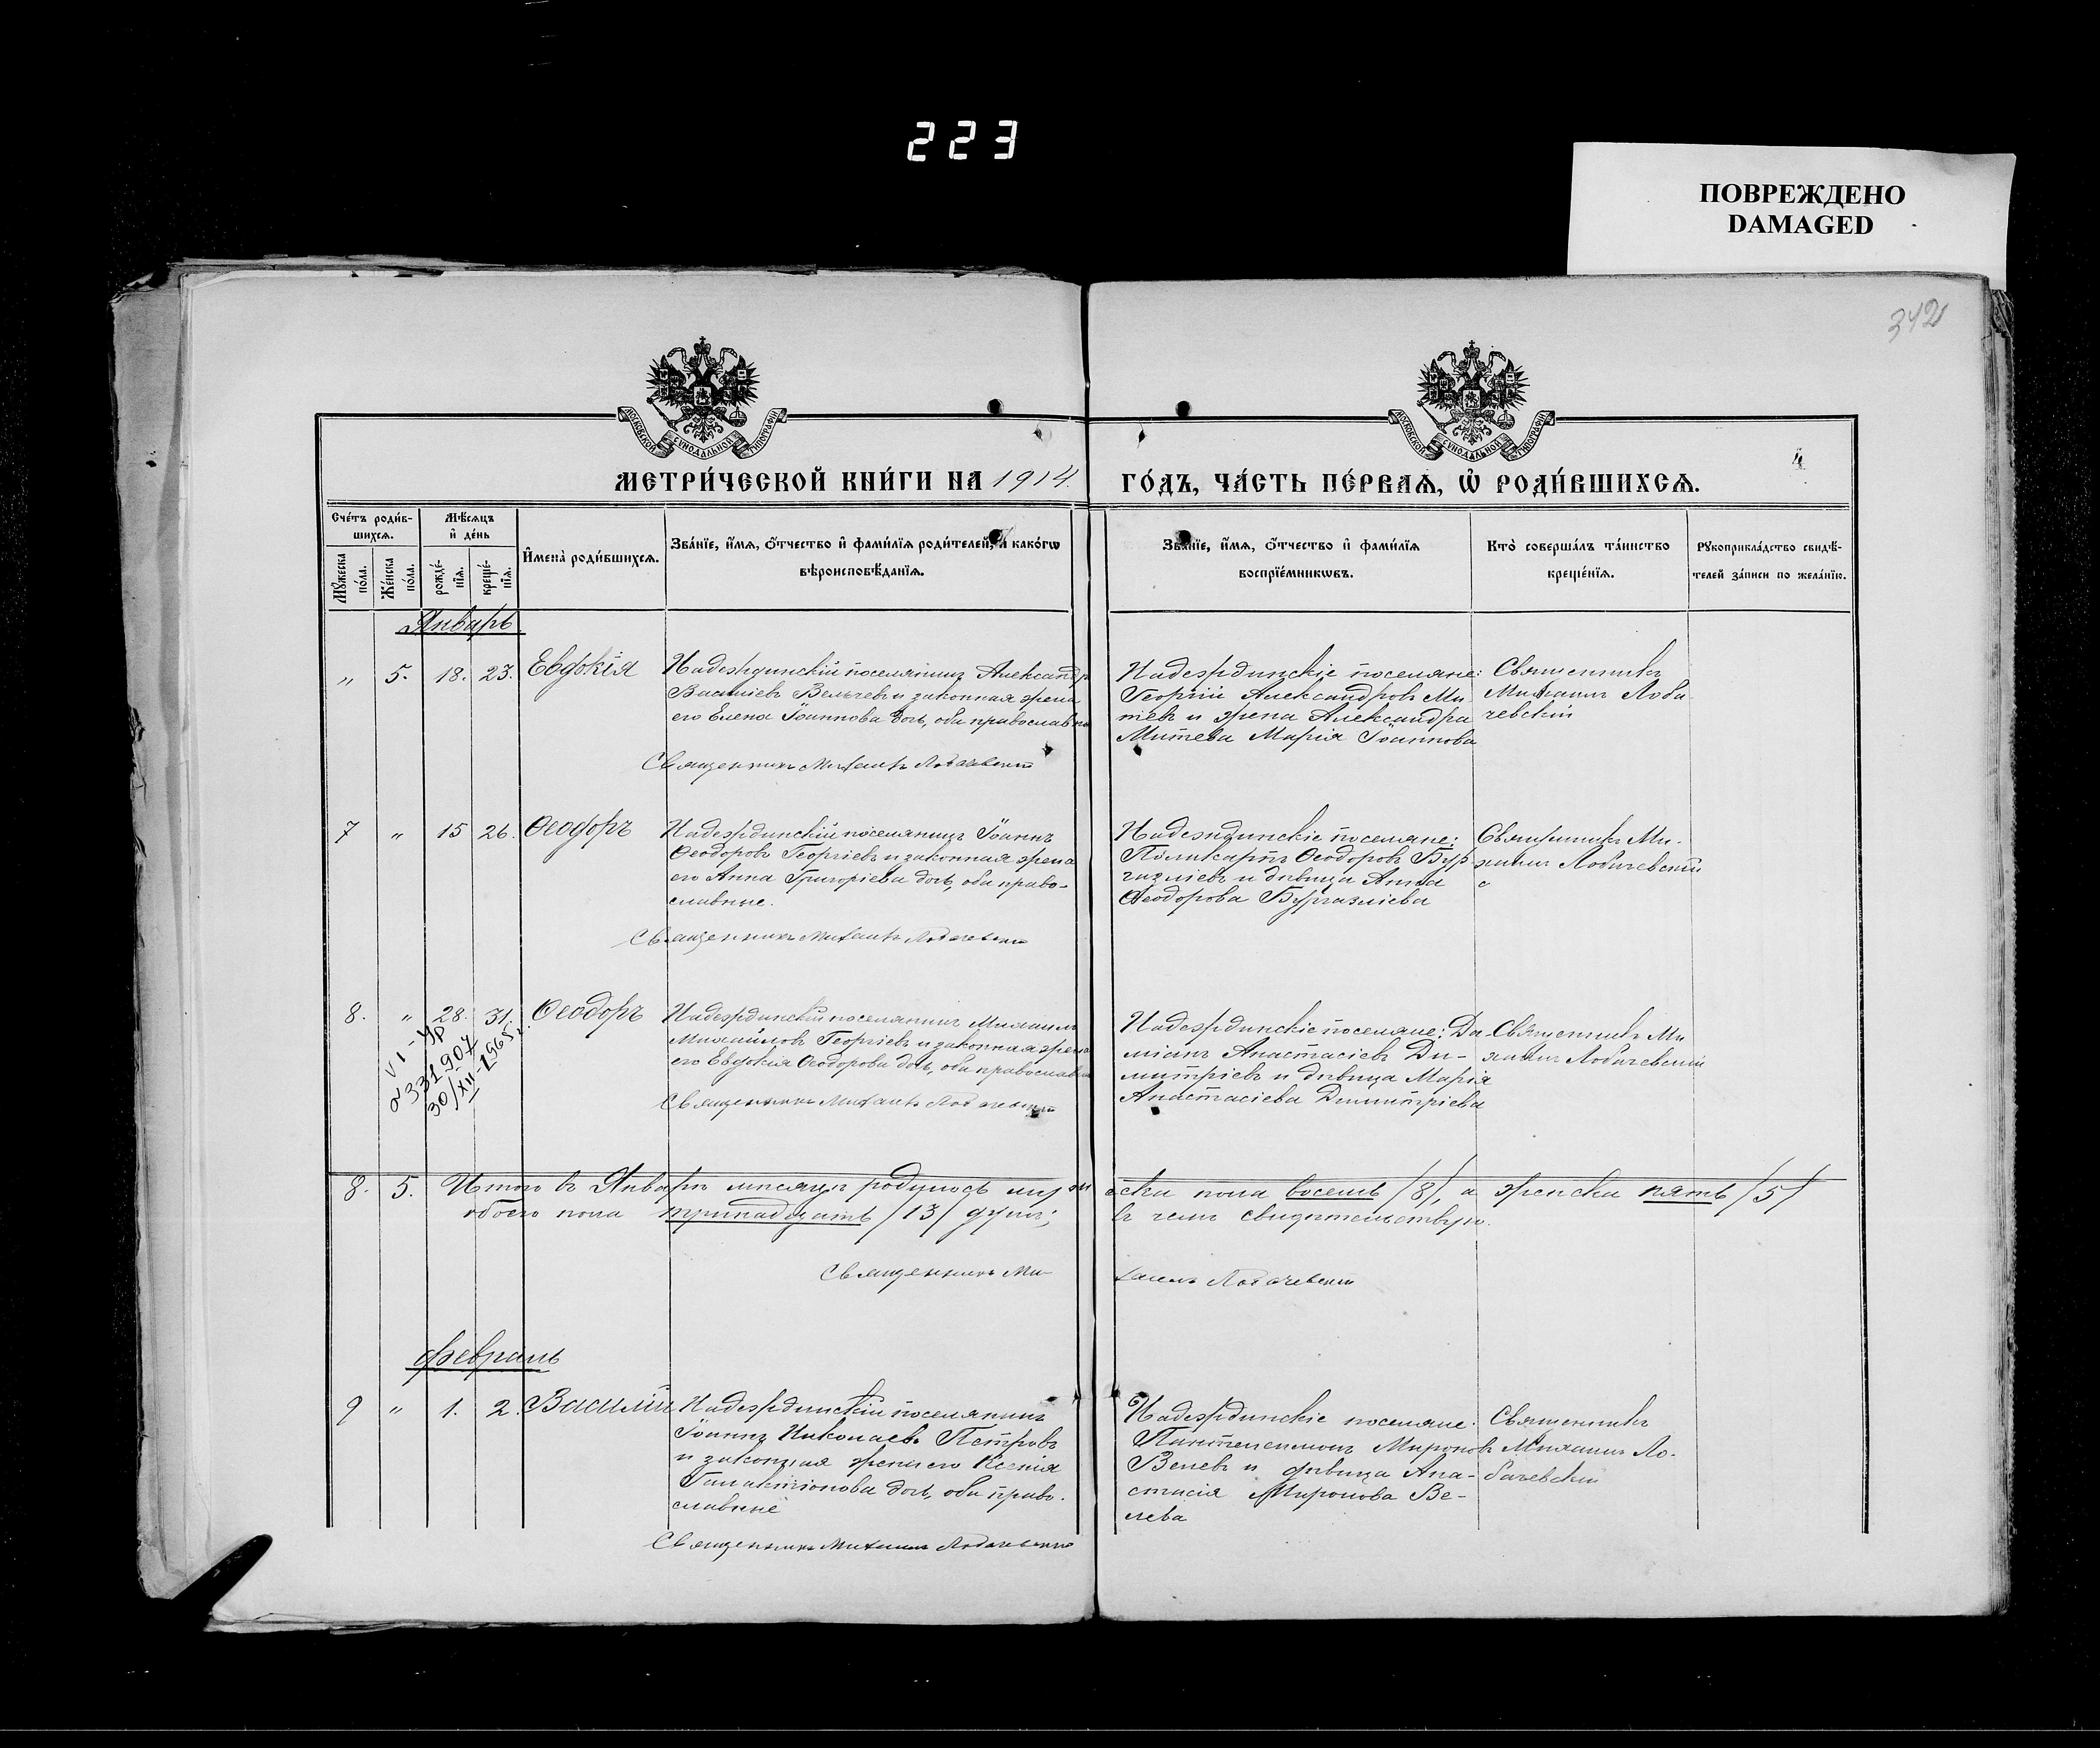 223
ПОВРЕЖДЕНО
DAMAGED
342
4
МОСКОВСКОЙ СѴНОДАЛЬНОЙ ТИПОГРАФІИ
МОСКОВСКОЙ СѴНОДАЛЬНОЙ ТИПОГРАФІИ
МЕТРИ́ЧЕСКОЙ КНИ́ГИ НА 1914. ГО́ДЪ, ЧА́СТЬ ПЕ́РВАѦ, Ѿ РОДИ́ВШИХСѦ.
Сче́тъ роди́в-
шихсѧ.
Мѣ́сѧцъ
и҆ де́нь
Мꙋ́жеска по́ла.
Же́нска по́ла.
рожде́-
нїѧ.
креще́-
нїѧ.
И҆мена̀ роди́вшихсѧ.
Зва́нїе, и҆́мѧ, ѻ҆́тчество и҆ фами́лїѧ роди́телей, и҆ како́гѡ
вѣроисповѣ́данїѧ.
Зва́нїе, и҆́мѧ, ѻ҆́тчество и҆ фами́лїѧ
воспрїе́мникѡвъ.
Кто̀ соверша́лъ та́инство
креще́нїѧ.
Рꙋкоприкла́дство свидѣ́-
телей за́писи по жела́нїю.
Январь
" 5. 18. 23. Евдокія
Надеждинскій поселянинъ Александръ
Василіевъ Вельчевъ и законная жена
его Елена Іоаннова дочь, оба православн
Священникъ Михаилъ Лобачевскій
Надеждинскіе поселяне:
Георгій Александровъ Ми-
тевъ и жена Александра
Митева Марія Іоаннова
Священникъ
Михаилъ Лоба-
чевскій
7 " 15 26. Ѳеодоръ
Надеждинскій поселянинъ Іоаннъ
Ѳеодоровъ Георгіевъ и законная жена
его Анна Григоріева дочь, оба право-
славные.
Священникъ Михаилъ Лобачевскій
Надеждинскіе поселяне:
Поликарпъ Ѳеодоровъ Бур-
газліевъ и дѣвица Анна
Ѳеодорова Бургазліева
Священникъ Ми-
хаилъ Лобачевскій
8. " 28. 31. Ѳеодоръ
VI-УР
2331907
30/XII-1965г.
Надеждинскій поселянинъ Михаилъ
Михайловъ Георгіевъ и законная жена
его Евдокія Ѳеодорова дочь, оба православн
Священникъ Михаилъ Лобачевскій
Надеждинскіе поселяне: Да-
міанъ Анастасіевъ Ди-
митріевъ и дѣвица Марія
Анастасіева Димитріева
Священникъ Ми
хаилъ Лобачевскій
8. 5. Итого въ Январѣ мѣсяцѣ родилось мужеска пола восемь /8/, а женска пять /5/
обоего пола тринадцать /13/ душъ; въ чемъ свидѣтельствую.
Священникъ Ми-
хаилъ Лобачевскій
Февраль
9 " 1. 2. Василій
Надеждинскій поселянинъ
Іоаннъ Николаевъ Петровъ
и законная жена его Ксенія
Галактіонова дочь, оба право-
славные
Священникъ Михаилъ Лобачевскій
Надеждинскіе поселяне:
Пантелеимонъ Мироновъ
Велевъ и дѣвица Ана-
стасія Миронова Ве-
лева
Священникъ
Михаилъ Ло-
бачевскій